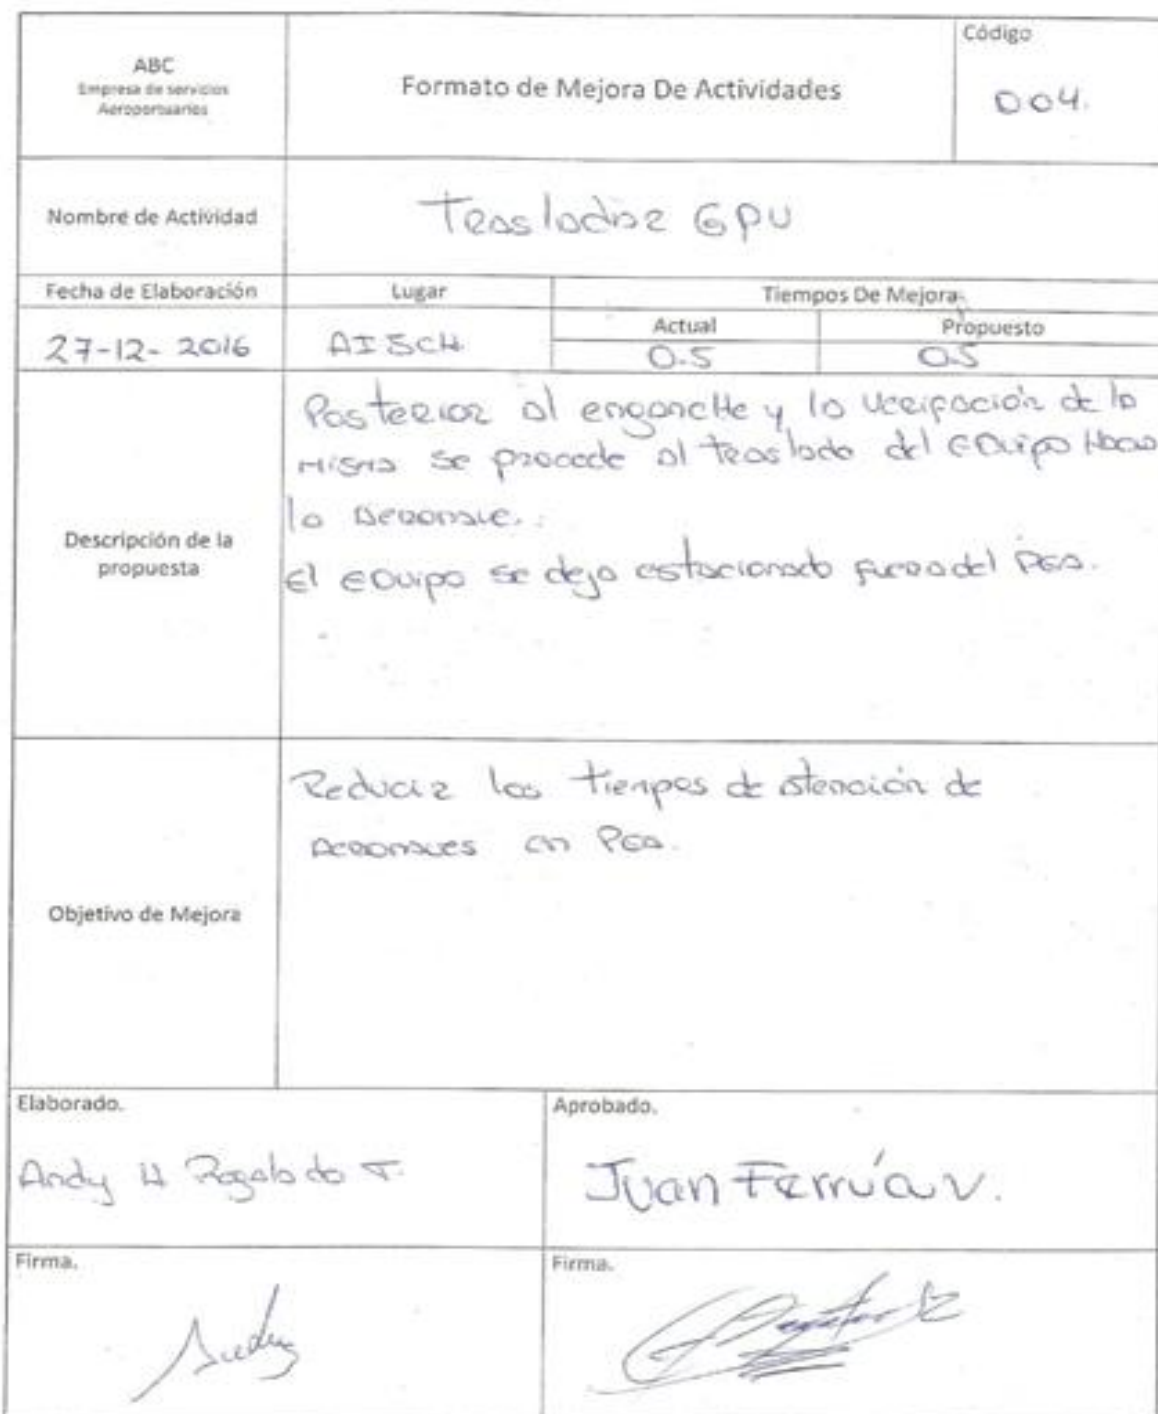 ABC
Empresa de servicios
Aeroportuarios
Formato de Mejora De Actividades
Código
004.
Nombre de Actividad
Trasladar GPU
Fecha de Elaboración
Lugar
Tiempos De Mejora
Actual
Propuesto
27-12-2016
AISCH
0.5
0.5
Descripción de la
propuesta
Posterior al enganche y la verificación de la
misma se procede al traslado del equipo hacia
la aeronave.
El equipo se deja estacionado fuera del PEA.
Objetivo de Mejora
Reducir los tiempos de atención de
aeronaves en PEA.
Elaborado.
Andy H Regalado T.
Aprobado.
Juan Ferrúa V.
Firma.
Andy
Firma.